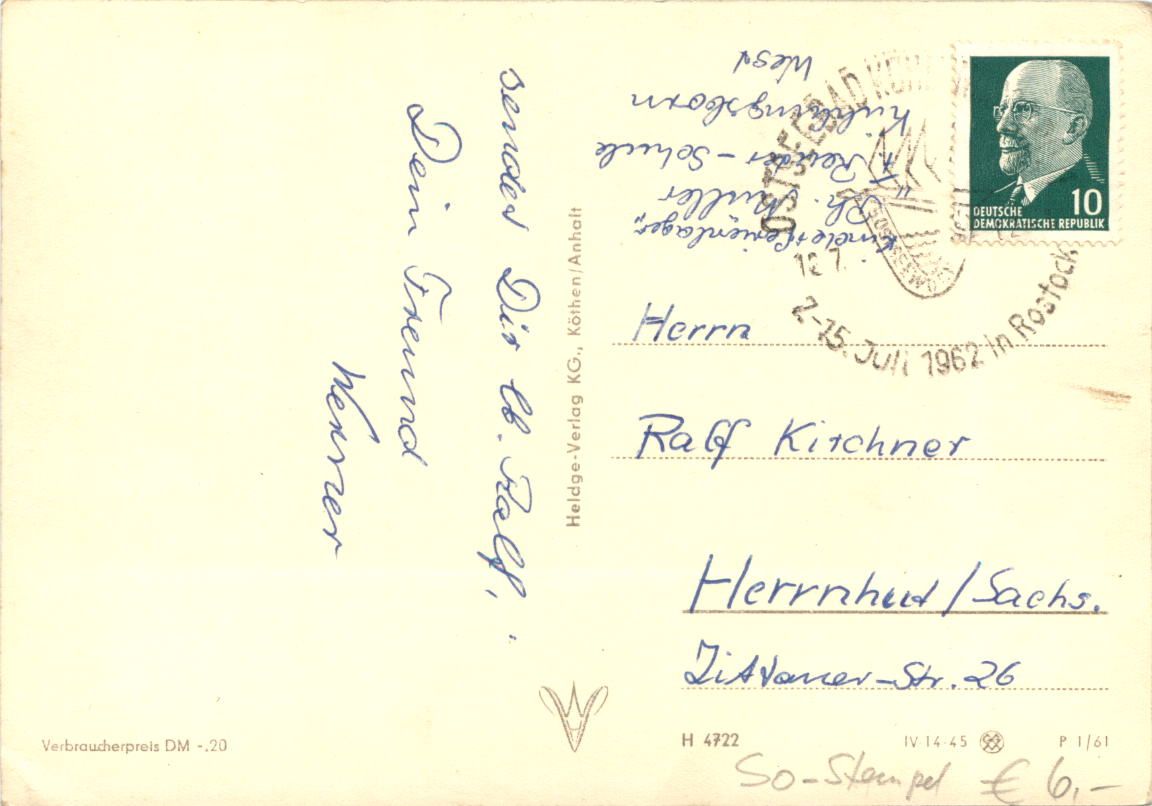 sendet Dir lb. Ralf,
Dein Freund
Werner
Heldge-Verlag KG., Köthen/Anhalt
Kinderferienlager
Rh. Müller
"F. Reuter-Schule
Kühlungsborn
West
OSTSEEBAD KÜH
2-15. Juli 1962 in Rostock
10
DEUTSCHE
DEMOKRATISCHE REPUBLIK
Herrn
Ralf Kirchner
Herrnhut/Sachs.
Zittauer-Str. 26
Verbraucherpreis DM -.20
H 4722
IV-14-45
P 1/61
So-Stempel € 6,-